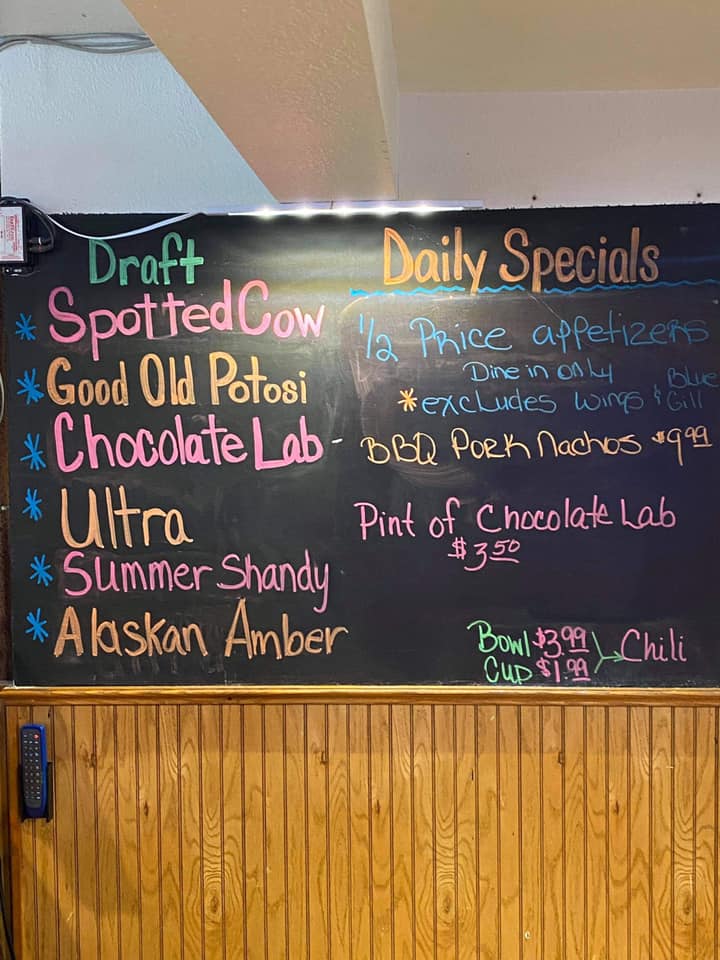 Draft
* Spotted Cow
* Good Old Potosi
* Chocolate Lab -
* Ultra
* Summer Shandy
* Alaskan Amber
Daily Specials
1/2 Price appetizers
Dine in only
*excludes wings & Blue Gill
BBQ Pork Nachos $9.99
Pint of Chocolate Lab
$3.50
Bowl $3.99
Cup $1.99
Chili